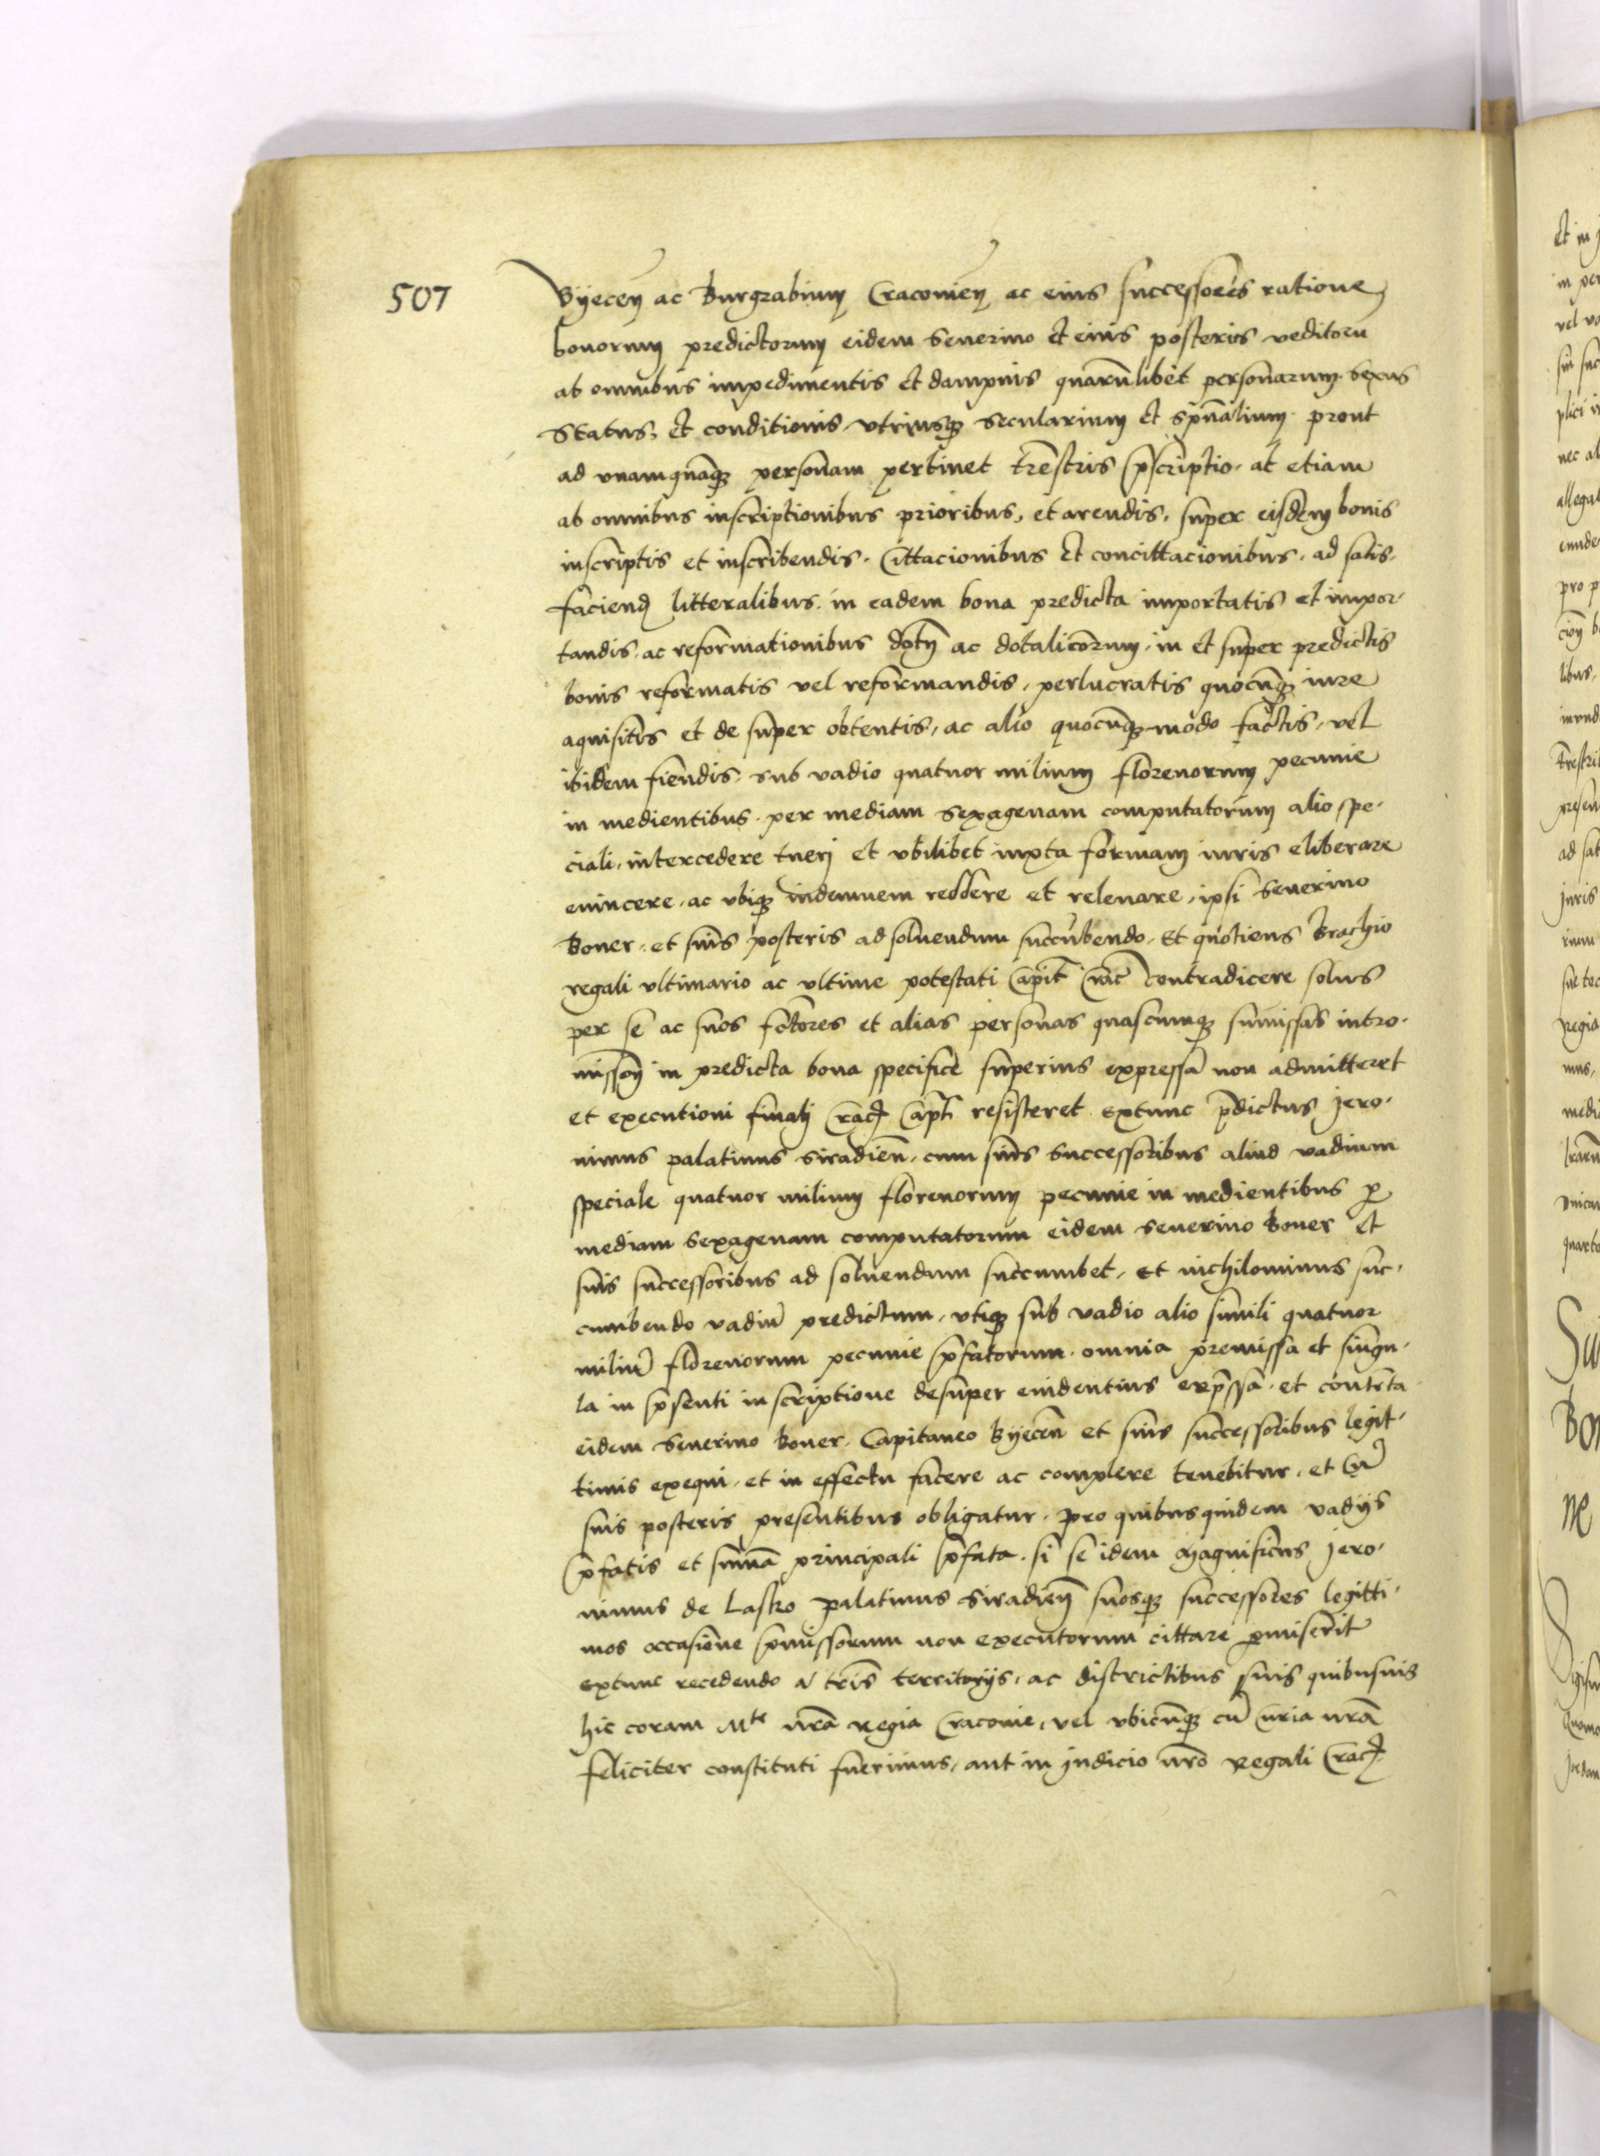 507
Byecen ac Burgrabium Cracovien ac eius successores ratione
bonorum predictorum eidem Severino et eius posteris veditoru
ab omnibus impedimentis et dampnis quarumlibet personarum sexus
status, et conditionis utriusque secularium et spiritualium prout
ad unamquamque personam pertinet terrestris prescriptio at etiam
ab omnibus inscriptionibus prioribus, et arendis, super eisdem bonis
inscriptis et inscribendis. Cittacionibus et concittacionibus. ad satis
faciend litteralibus in eadem bona predicta importatis et impor
tandis, ac reformationibus dotum ac dotalicorum, in et super predictis
bonis reformatis vel reformandis, perlucratis quocunque iure
aquisitis et de super obtentis, ac alio quocunque modo factis, vel
ibidem fiendis, sub vadio quatuor milium florenorum pecunie
in medientibus per mediam sexagenam computatorum alio spe
ciali, intercedere tueri et ubilibet iuxta formam iuris eliberare
evincere, ac ubique indemnem reddere et relevare, ipsi Severino
Boner, et suis posteris ad solvendum succumbendo. Et quotiens Brachio
regali ultimario ac ultime potestati Capit Crac Contradicere solus
per se ac suos fctores et alias personas quascumque sumissas intro
misson in predicta bona specifice superius expressa non admitteret
et executioni finali Crac Capt resisteret extunc predictus Jero
nimus palatinus Siradien, cum suis successoribus aliud vadium
speciale quatuor milium florenorum pecunie in medientibus per
mediam sexagenam computatorum eidem Severino Boner et
suis successoribus ad solvendum succumbet, et nichilominus suc
cumbendo vadium predictum, utique sub vadio alio simili quatuor
milium florenorum pecunie prefatorum omnia premissa et singu
la in presenti inscriptione desuper evidentius expressa et contenta
eidem Severino Boner, Capitaneo Byecen et suis successoribus legit
timis exequi, et in effectu facere ac complere tenebitur, et cum
suis posteris presentibus obligatur. Pro quibus quidem vadiis
prefatis et summa principali prefata. si se idem Magnificus Jero
nimus de Lasko palatinus Siradien suosque successores legitti
mos occasione premissorum non executorum cittare permiserit
extunc recedendo a terris territoriis, ac districtibus suis quibusvis
hic coram Mte nra Regia Cracovie, vel ubicunque cum Curia nra
feliciter constituti fuerimus, aut in iudicio nro Regali Crac